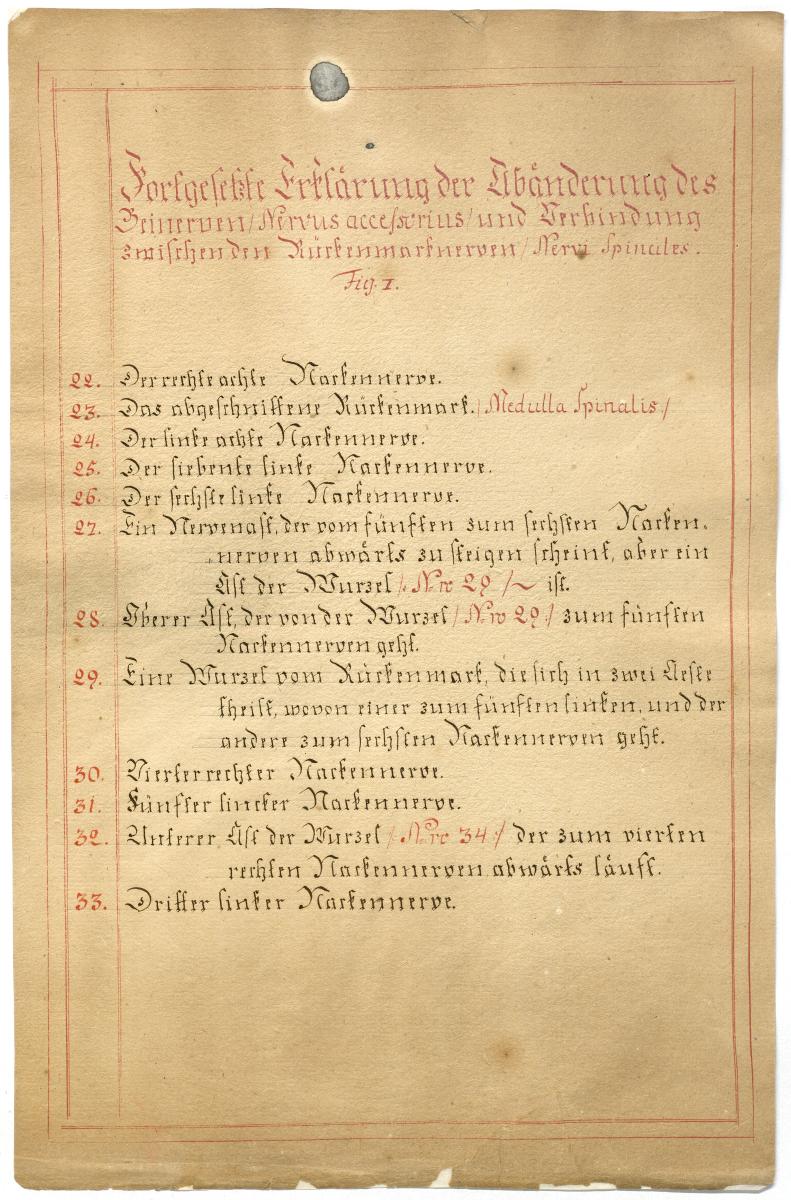 Fortgesetzte Erklärung der Abänderung des
Beinerven /Nervus accessorius/ und Verbindung
zwischen den Rückenmarknerven /Nervi Spinales.
Fig. I.
22. Der rechte achte Nackennerve.
23. Das abgeschnittene Rückenmark. /Medulla Spinalis./
24. Der linke achte Nackennerve.
25. Der siebente linke Nackennerve.
26. Der sechste linke Nackennerve.
27. Ein Nervenast, der vom fünften zum sechsten Nacken-
nerven abwärts zu steigen scheint, aber ein
Ast der Wurzel /: Nro 29 /~ ist.
28. Oberer Ast, der von der Wurzel /Nro 29:/ zum fünften
Nackennerven geht.
29. Eine Wurzel vom Rückenmark, die sich in zwei Aeste
theilt, wovon einer zum fünften linken, und der
andere zum sechsten Nackennerven geht.
30. Vierter rechter Nackennerve.
31. Fünfter lincker Nackennerve.
32. Unterer Ast der Wurzel /: Nro 34:/ der zum vierten
rechten Nackennerven abwärts läuft.
33. Dritter linker Nackennerve.